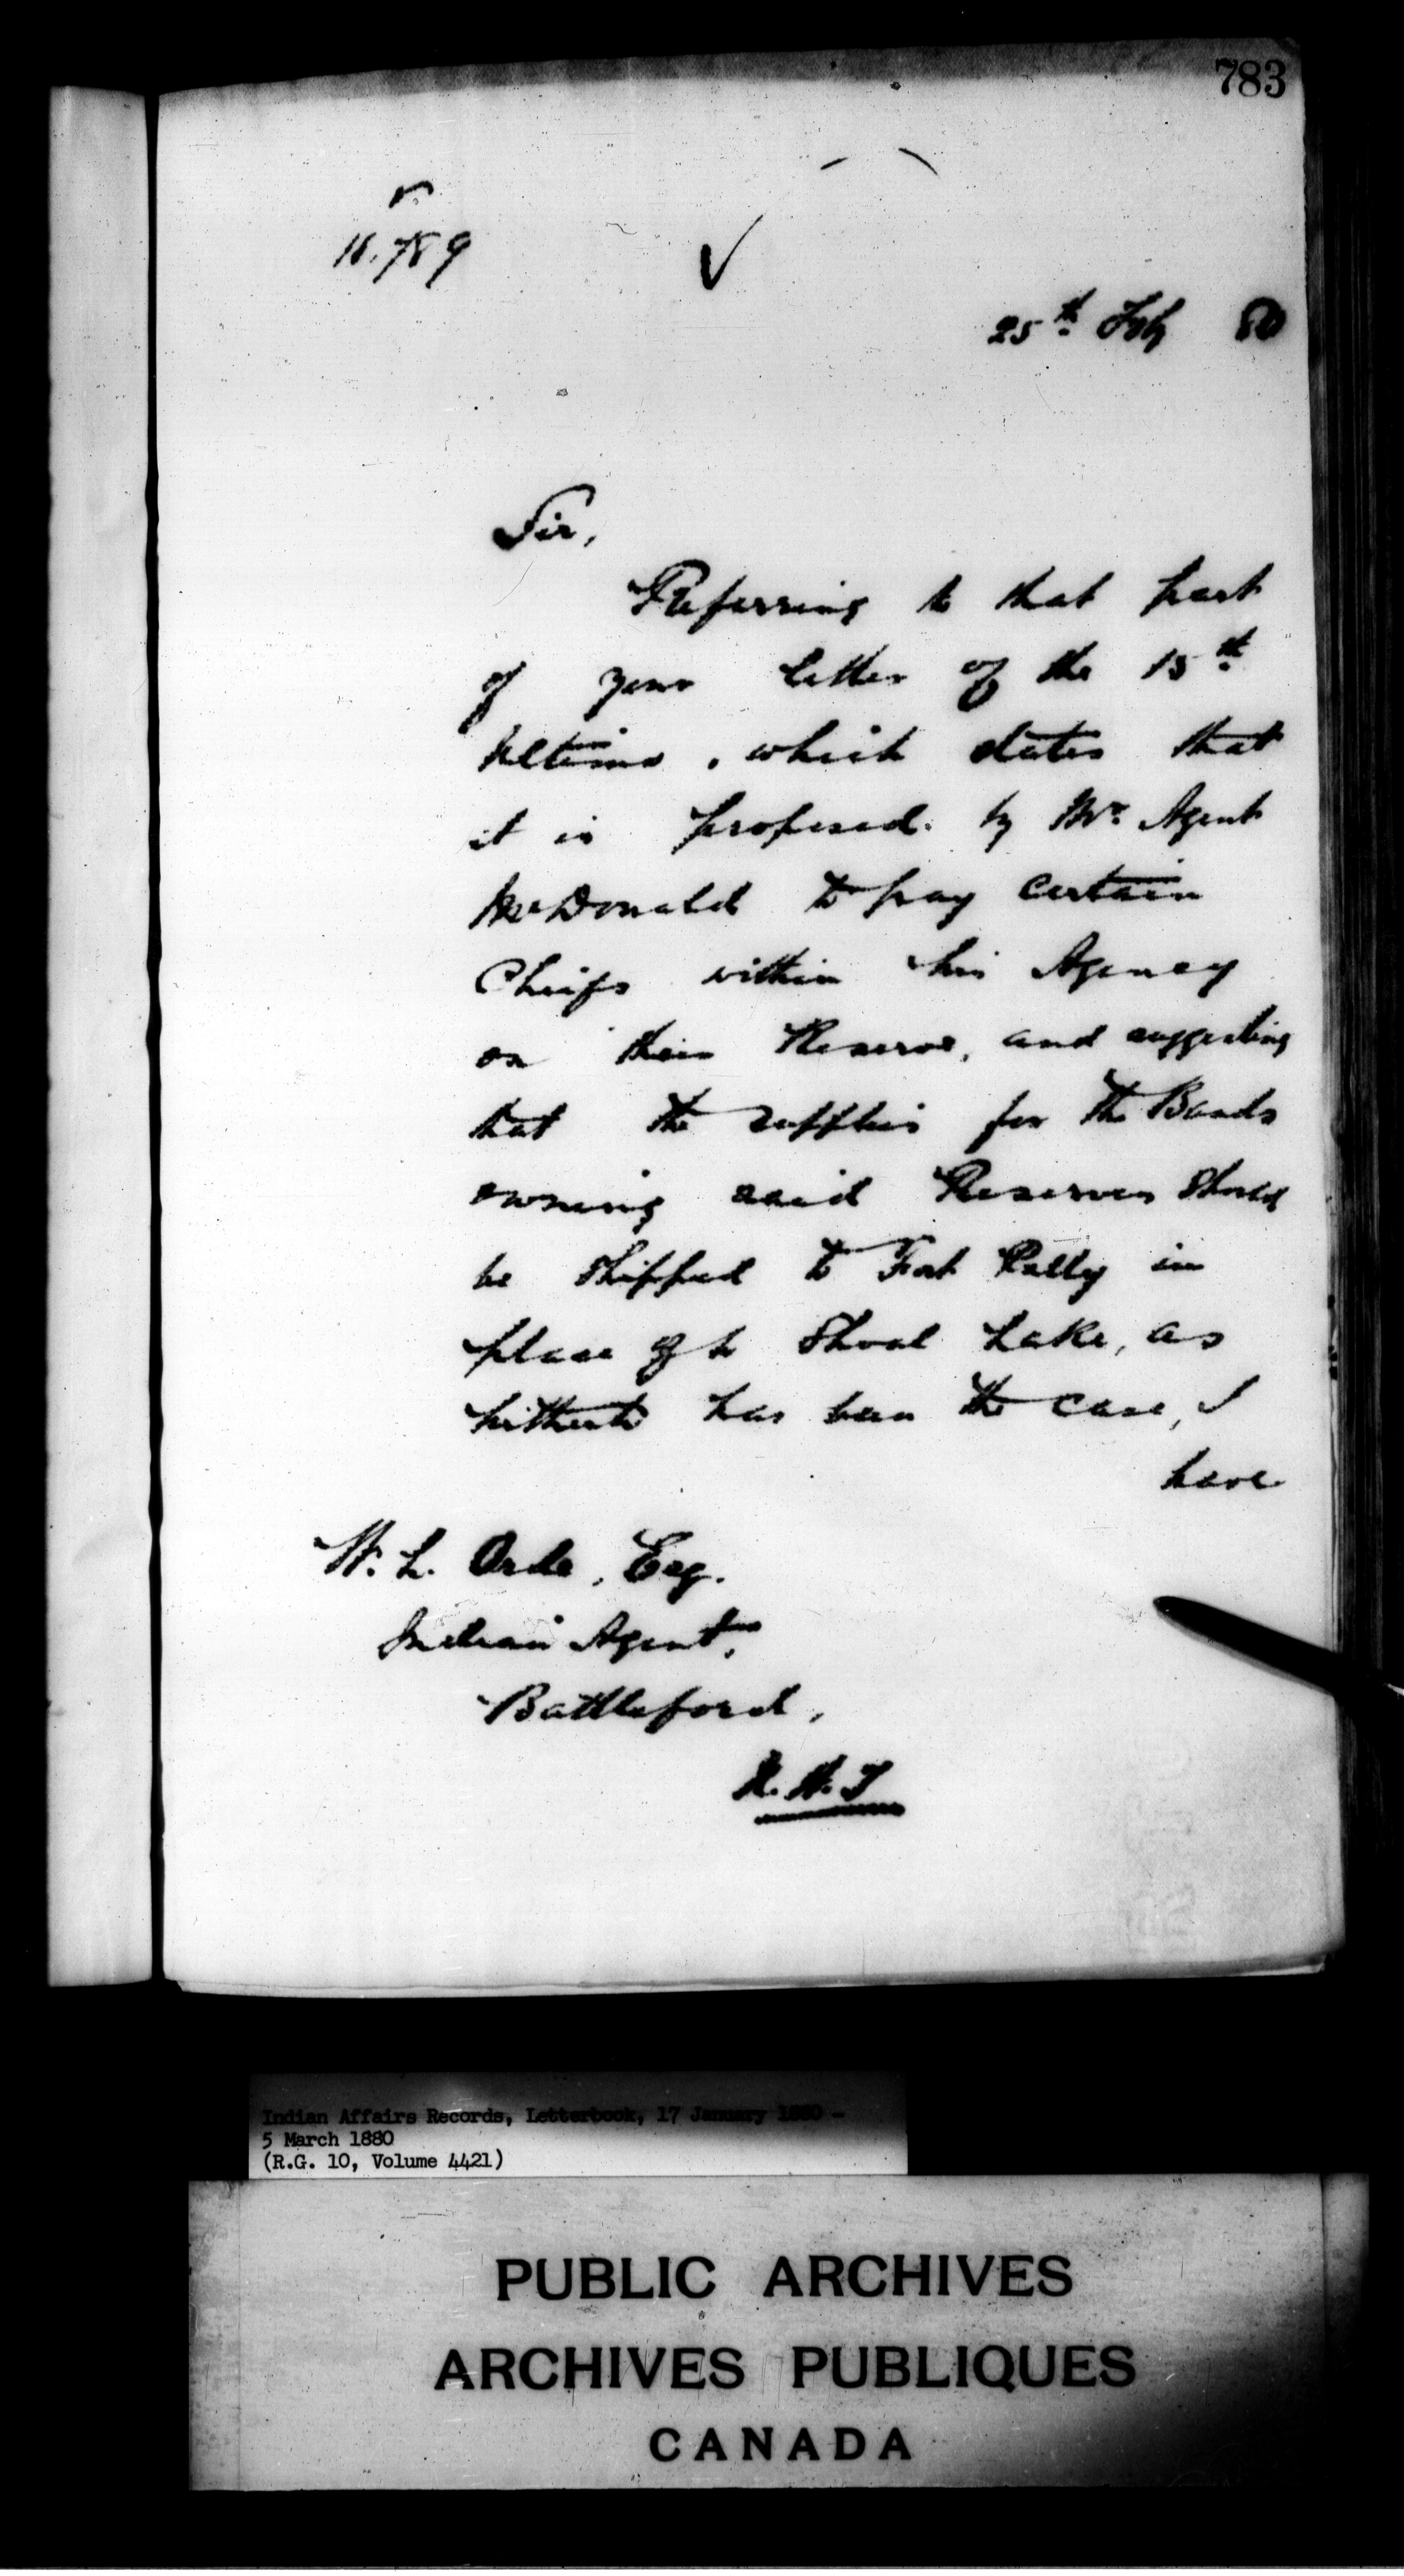 783
16.789
25th Feby 80
Sir,
Referring to that part
of your letter of the 15th
Ultimo, which states that
it is proposed by Mr. Agent
McDonald to pay certain
Chiefs within his Agency
on their Reserve, and suggesting
that the supplies for the Bands
owning said Reserves should
be shipped to Fort Pelly in
place of to Shoal Lake, as
hitherto has been the case, I
have
W. L. Orde, Esq.
Indian Agent,
Battleford,
N.W.T
Indian Affairs Records, Letterbook, 17 January 1880 -
5 March 1880
(R.G. 10, Volume 4421)
PUBLIC ARCHIVES
ARCHIVES PUBLIQUES
CANADA